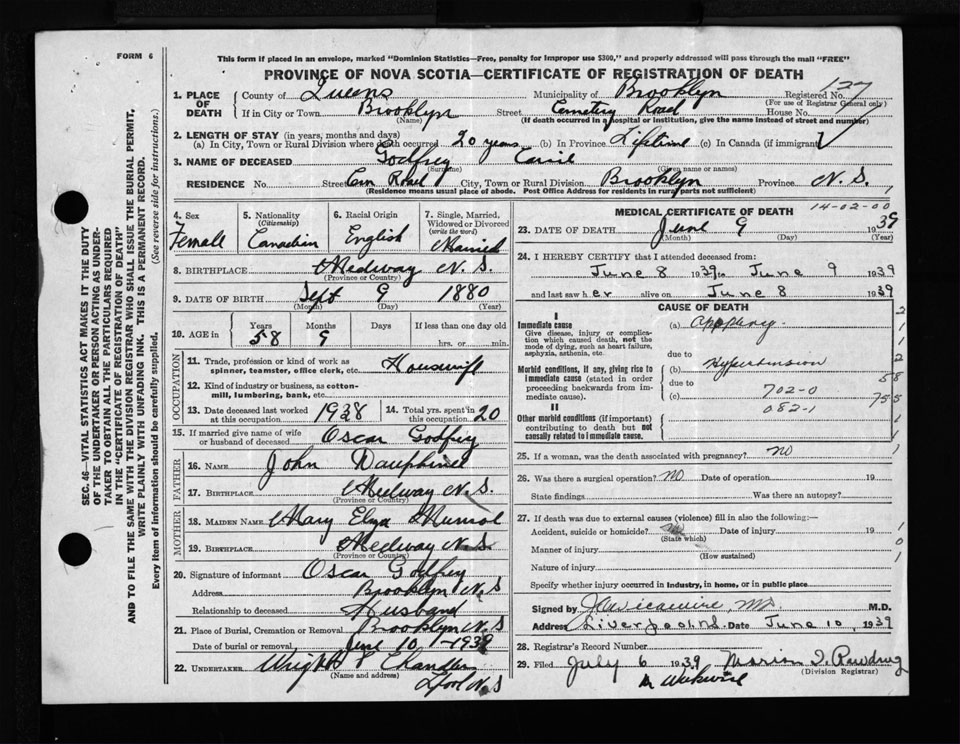 FORM 6
This form if placed in an envelope, marked "Dominion Statistics—Free, penalty for improper use $300," and properly addressed will pass through the mail "FREE"
PROVINCE OF NOVA SCOTIA—CERTIFICATE OF REGISTRATION OF DEATH
127
1. PLACE OF DEATH
County of Queens Municipality of Brooklyn Registered No.
(For use of Registrar General only)
If in City or Town Brooklyn Street Cemetry Road House No.
(Name) (If death occurred in a hospital or institution, give the name instead of street and number)
2. LENGTH OF STAY (in years, months and days)
(a) In City, Town or Rural Division where death occurred 20 years (b) In Province Lifetime (c) In Canada (if immigrant)
3. NAME OF DECEASED Godfrey Carrie
(Surname) (Given name or names)
RESIDENCE No. Street Cem Road City, Town or Rural Division Brooklyn Province N.S.
(Residence means usual place of abode. Post Office Address for residents in rural parts not sufficient)
4. Sex Female
5. Nationality (Citizenship) Canadian
6. Racial Origin English
7. Single, Married, Widowed or Divorced (write the word) Married
8. BIRTHPLACE Medway N.S.
(Province or Country)
9. DATE OF BIRTH Sept 9 1880
(Month) (Day) (Year)
10. AGE in Years Months Days If less than one day old
58 9 hrs. or min.
OCCUPATION
11. Trade, profession or kind of work as spinner, teamster, office clerk, etc. Housewife
12. Kind of industry or business, as cotton-mill, lumbering, bank, etc.
13. Date deceased last worked at this occupation 1938
14. Total yrs. spent in this occupation 20
15. If married give name of wife or husband of deceased Oscar Godfrey
FATHER
16. NAME John Dauphinee
17. BIRTHPLACE Medway N.S.
(Province or Country)
MOTHER
18. MAIDEN NAME Mary Eliza
19. BIRTHPLACE Medway N.S.
(Province or Country)
20. Signature of informant Oscar Godfrey
Address Brooklyn N.S
Relationship to deceased Husband
21. Place of Burial, Cremation or Removal Brooklyn N.S
Date of burial or removal June 10 - 1939
22. UNDERTAKER Wright & Chandler
(Name and address)
Lpool N.S
14-02-00
MEDICAL CERTIFICATE OF DEATH
23. DATE OF DEATH June 9 1939
(Month) (Day) (Year)
24. I HEREBY CERTIFY that I attended deceased from:
June 8 1939 to June 9 1939
and last saw her alive on June 8 1939
CAUSE OF DEATH
I
Immediate cause
Give disease, injury or complication which caused death, not the mode of dying, such as heart failure, asphyxia, asthenia, etc.
(a) Apoplexy
due to
Morbid conditions, if any, giving rise to immediate cause (stated in order proceeding backwards from immediate cause).
(b) Hypertension
due to
(c) 702-0
082-1
II
Other morbid conditions (if important) contributing to death but not causally related to immediate cause.
2
1
1
2
58
755
25. If a woman, was the death associated with pregnancy? No
26. Was there a surgical operation? No Date of operation 19
State findings Was there an autopsy?
27. If death was due to external causes (violence) fill in also the following:—
Accident, suicide or homicide? No Date of injury 19
(State which)
Manner of injury
(How sustained)
Nature of injury
Specify whether injury occurred in industry, in home, or in public place
Signed by J Wickwire, MD. M.D.
Address Liverpool N.S. Date June 10, 1939
28. Registrar's Record Number
29. Filed July 6 1939 Marion
(Division Registrar)
Dr Wickwire
SEC. 46—VITAL STATISTICS ACT MAKES IT THE DUTY OF THE UNDERTAKER OR PERSON ACTING AS UNDERTAKER TO OBTAIN ALL THE PARTICULARS REQUIRED IN THE "CERTIFICATE OF REGISTRATION OF DEATH"
AND TO FILE THE SAME WITH THE DIVISION REGISTRAR WHO SHALL ISSUE THE BURIAL PERMIT.
WRITE PLAINLY WITH UNFADING INK. THIS IS A PERMANENT RECORD.
Every item of information should be carefully supplied. (See reverse side for instructions.)